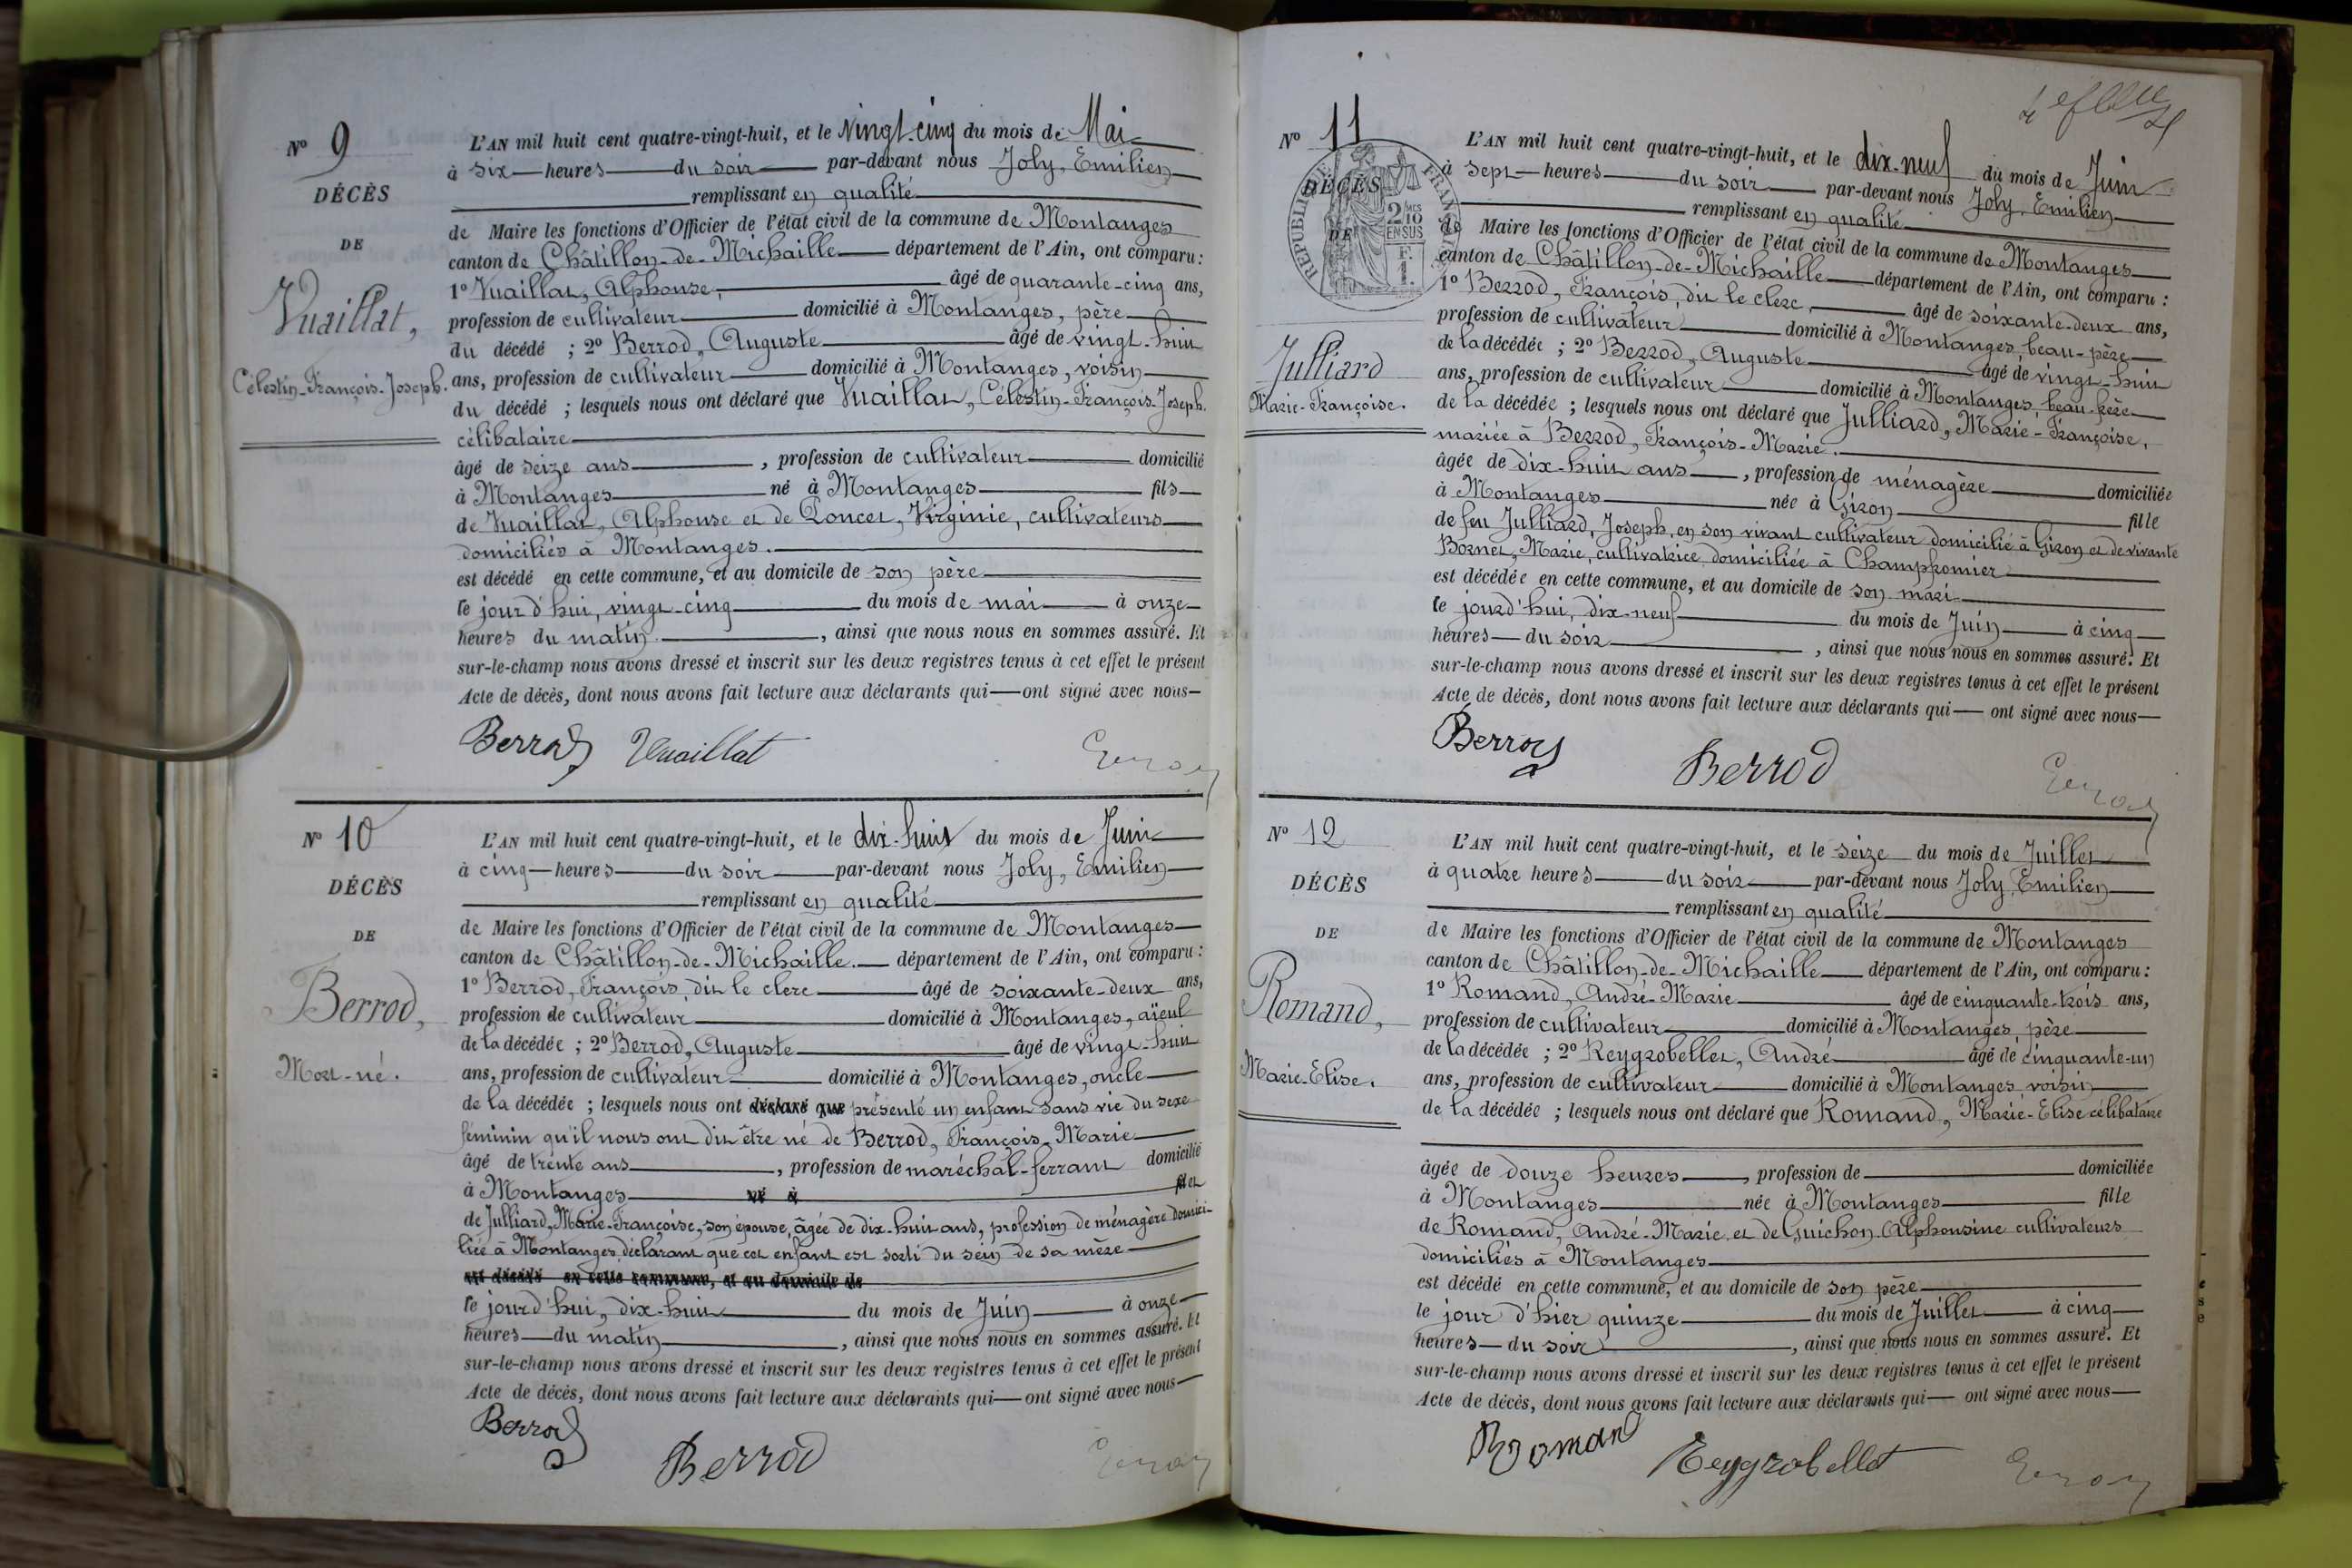 Nº 9
DÉCÈS
DE
Vuaillat,
Célestin-François-Joseph.
L'AN mil huit cent quatre-vingt-huit, et le vingt-cinq du mois de Mai
à six heures du soir par-devant nous Joly, Emilien
remplissant en qualité
de Maire les fonctions d'Officier de l'état civil de la commune de Montanges
canton de Châtillon-de-Michaille département de l'Ain, ont comparu :
1º Vuaillat, Alphonse, âgé de quarante-cinq ans,
profession de cultivateur domicilié à Montanges, père
du décédé ; 2º Berrod, Auguste âgé de vingt-huit
ans, profession de cultivateur domicilié à Montanges, voisin
du décédé ; lesquels nous ont déclaré que Vuaillat, Célestin-François-Joseph.
célibataire
âgé de seize ans, profession de cultivateur domicilié
à Montanges né à Montanges fils
de Vuaillat, Alphonse et de Poncet, Virginie, cultivateurs
domiciliés à Montanges.
est décédé en cette commune, et au domicile de son père
le jour d'hui, vingt-cinq du mois de mai à onze
heures du matin, ainsi que nous nous en sommes assuré. Et
sur-le-champ nous avons dressé et inscrit sur les deux registres tenus à cet effet le présent
Acte de décès, dont nous avons fait lecture aux déclarants qui ont signé avec nous
Berrod Vuaillat
Nº 10
DÉCÈS
DE
Berrod,
Mort-né.
L'AN mil huit cent quatre-vingt-huit, et le dix-huit du mois de Juin
à cinq heures du soir par-devant nous Joly, Emilien
remplissant en qualité
de Maire les fonctions d'Officier de l'état civil de la commune de Montanges
canton de Châtillon-de-Michaille. département de l'Ain, ont comparu :
1º Berrod, François, dit le clerc âgé de soixante-deux ans,
profession de cultivateur domicilié à Montanges, aïeul
de la décédée ; 2º Berrod, Auguste âgé de vingt-huit
ans, profession de cultivateur domicilié à Montanges, oncle
de la décédée ; lesquels nous ont déclaré que présenté un enfant sans vie du sexe
féminin qu'il nous ont dit être né de Berrod, François-Marie
âgé de trente ans, profession de maréchal-ferrant domicilié
à Montanges né à fils et
de Julliard, Marie-Françoise, son épouse, âgée de dix-huit ans, profession de ménagère domici-
liée à Montanges déclarant que cet enfant est sorti du sein de sa mère
est décédé en cette commune, et au domicile de
le jour d'hui, dix-huit du mois de Juin à onze
heures du matin, ainsi que nous nous en sommes assuré. Et
sur-le-champ nous avons dressé et inscrit sur les deux registres tenus à cet effet le présent
Acte de décès, dont nous avons fait lecture aux déclarants qui ont signé avec nous
Berrod
Berrod
Nº 11
DÉCÈS
DE
RÉPUBLIQUE FRANÇAISE
2/10 EN SUS
Julliard
Marie-Françoise.
L'AN mil huit cent quatre-vingt-huit, et le dix-neuf du mois de Juin
à sept heures du soir par-devant nous Joly, Emilien
remplissant en qualité
de Maire les fonctions d'Officier de l'état civil de la commune de Montanges
canton de Châtillon-de-Michaille département de l'Ain, ont comparu :
1º Berrod, François, dit le clerc, âgé de soixante-deux ans,
profession de cultivateur domicilié à Montanges, beau-père
de la décédée ; 2º Berrod, Auguste âgé de vingt-huit
ans, profession de cultivateur domicilié à Montanges, beau-frère
de la décédée ; lesquels nous ont déclaré que Julliard, Marie-Françoise,
mariée à Berrod, François-Marie.
âgée de dix-huit ans, profession de ménagère domiciliée
à Montanges née à Giron fille
de feu Julliard, Joseph, en son vivant cultivateur domicilié à Giron et de vivante
Bornet, Marie, cultivatrice domiciliée à Champfromier
est décédée en cette commune, et au domicile de son mari
le jourd'hui, dix-neuf du mois de Juin à cinq
heures du soir, ainsi que nous nous en sommes assuré. Et
sur-le-champ nous avons dressé et inscrit sur les deux registres tenus à cet effet le présent
Acte de décès, dont nous avons fait lecture aux déclarants qui ont signé avec nous
Berrod
Berrod
Nº 12
DÉCÈS
DE
Romand,
Marie-Elise.
L'AN mil huit cent quatre-vingt-huit, et le seize du mois de Juillet
à quatre heures du soir par-devant nous Joly, Emilien
remplissant en qualité
de Maire les fonctions d'Officier de l'état civil de la commune de Montanges
canton de Châtillon-de-Michaille département de l'Ain, ont comparu :
1º Romand, André-Marie âgé de cinquante-trois ans,
profession de cultivateur domicilié à Montanges père
de la décédée ; 2º Reygrobellet, André âgé de cinquante-un
ans, profession de cultivateur domicilié à Montanges voisin
de la décédée ; lesquels nous ont déclaré que Romand, Marie-Elise célibataire
âgée de douze heures, profession de domiciliée
à Montanges née à Montanges fille
de Romand, André-Marie et de Guichon Alphonsine cultivateurs
domiciliés à Montanges
est décédé en cette commune, et au domicile de son père
le jour d'hier quinze du mois de Juillet à cinq
heures du soir, ainsi que nous nous en sommes assuré. Et
sur-le-champ nous avons dressé et inscrit sur les deux registres tenus à cet effet le présent
Acte de décès, dont nous avons fait lecture aux déclarants qui ont signé avec nous
Romand
Reygrobellet